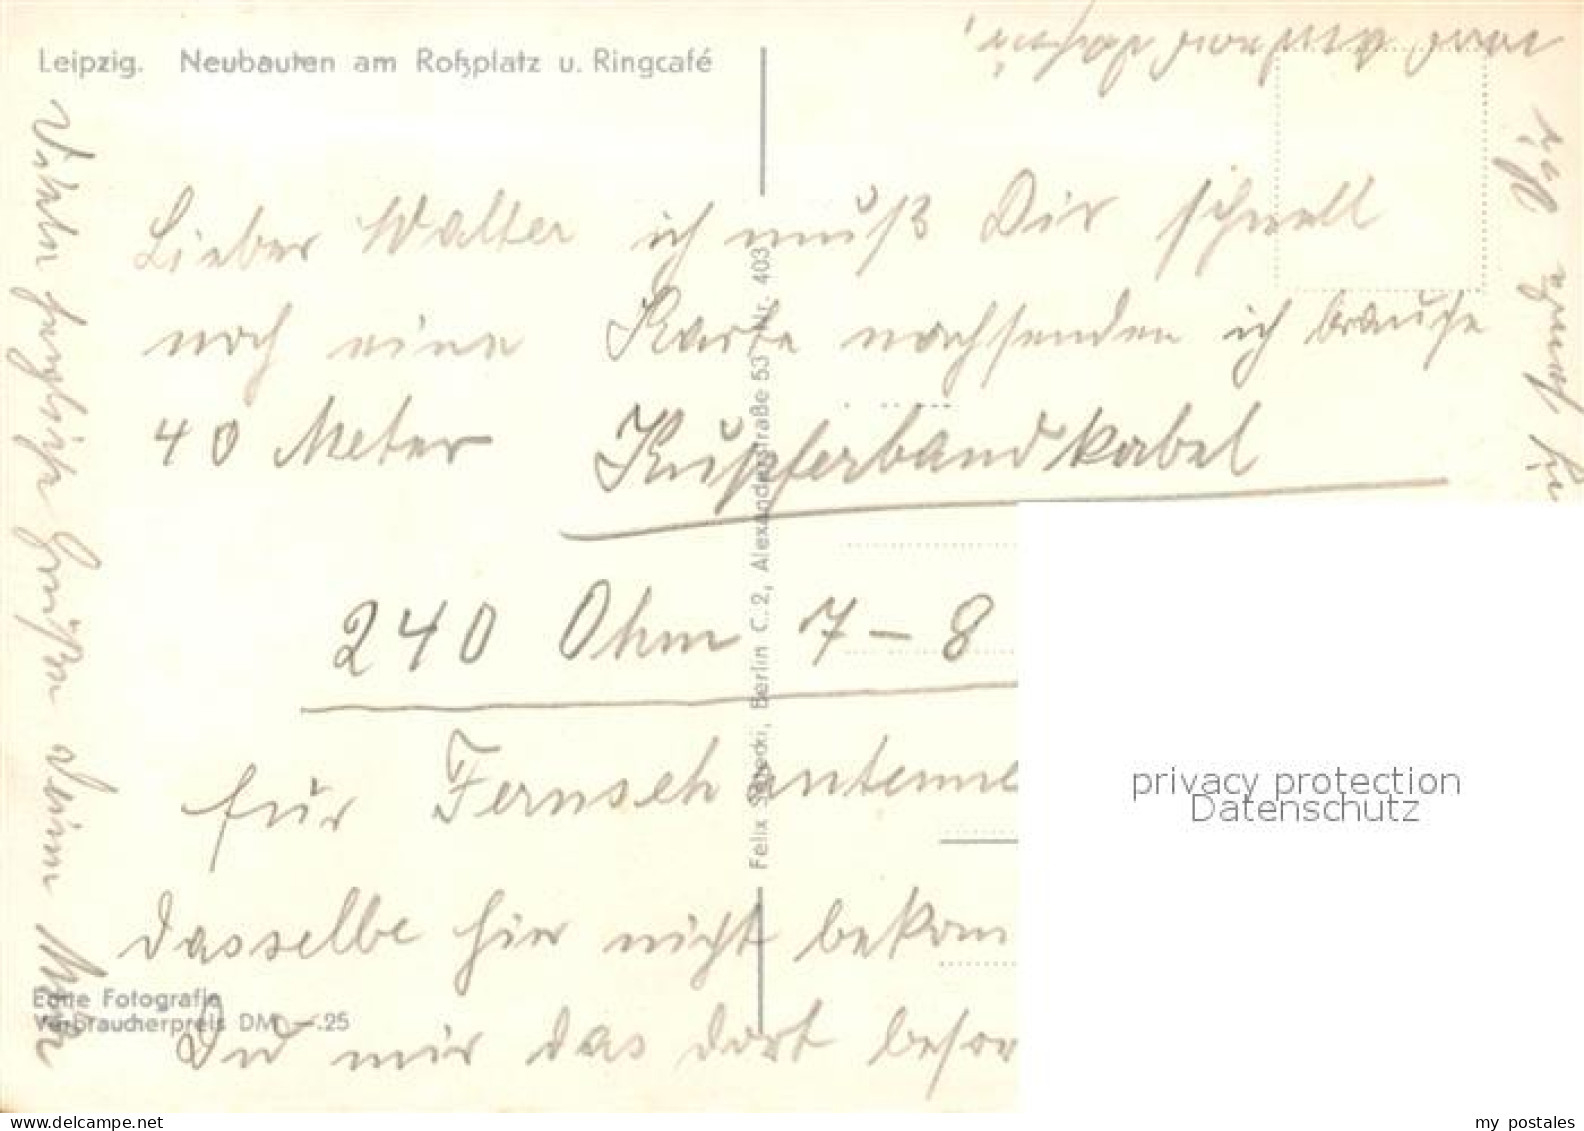 Leipzig. Neubauten am Roßplatz u. Ringcafé
Lieber Walter ich muß Dir schnell
noch eine Karte nachsenden ich brauche
40 Meter Kupferbandkabel
240 Ohm 7-8
für Fernsehantenne
dasselbe hier nicht bekom
Du mir das dort besor
Felix Setecki, Berlin C. 2, Alexanderstraße 53 Nr. 403
Echte Fotografie
Verbraucherpreis DM —.25
Vielen herzliche Grüßen Deinen
privacy protection
Datenschutz
delcampe.net
my postales